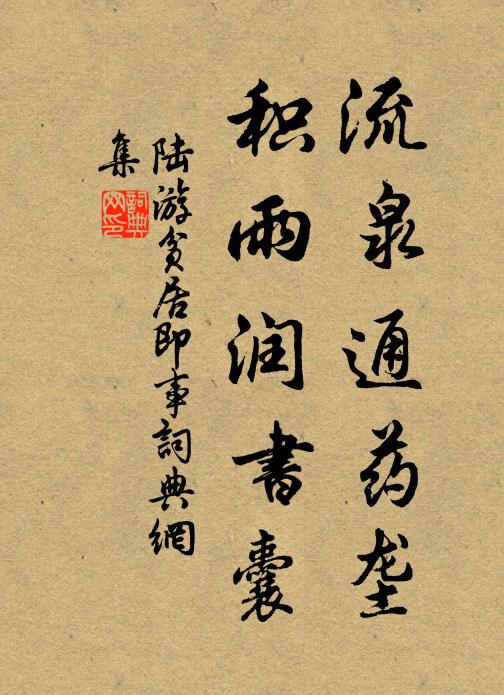 流泉通药垄
积雨润書囊
陆游贫居即事詞典網
集
詞典網印